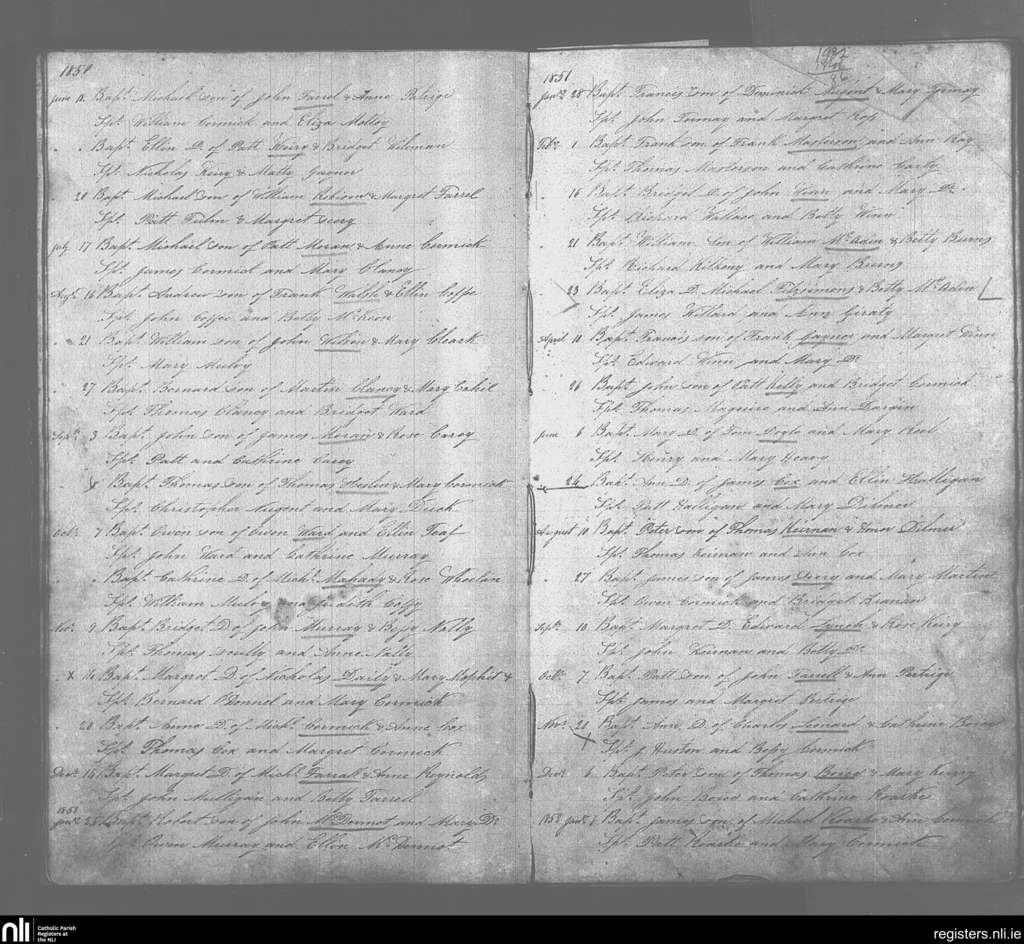 1850
June 13 Bapt. Michael son of John Farrel & Anne Patrige
Spt. William Cormick and Eliza Molloy
" " Bapt. Ellin D. of Patt Keiry & Bridget
Spt. Nicholas Keiry & Matty Gaynor
" 20 Bapt. Michael son of William Robison & Margret Farrel
Spt. Patt & Margret
July 17 Bapt. Michael son of Patt Moran & Anne Cormick
Spt. James Cormick and Mary Clancy
Augt. 16 Bapt. Andrew son of Frank Walsh & Ellin Coffe
Spt. John Coffee and Betty
" 21 Bapt. William son of John Wilson & Mary Cleark
Spt. Mary Muloy
" 27 Bapt. Bernard son of Martin Clancy & Mary Cahil
Spt. Thomas Clancy and Bridget Ward
Septr. 3 Bapt. John son of James Moran & Rose Carey
Spt. Patt and Cathrine Carey
" Bapt. Thomas son of Thomas Heslin & Mary Cormick
Spt. Christopher Nugent and Mary Duck
Octr. 7 Bapt. Owen son of Owen Ward and Ellin Feaf
Spt. John Ward and Cathrine Murray
" " Bapt. Cathrine D. of Michl. Mahady & Rose Whealin
Spt. William Muloy and Judith Coffy
Nov. 9 Bapt. Bridget D. of John Murray & Bessy Nally
Spt. Thomas Scully and Anne Nally
" X 16 Bapt. Margret D. of Nicholas Daily & Mary
Spt. Bernard O'Donnel and Mary Cormick
" 20 Bapt. Anne D. of Michl. Cormick & Anne Cox
Spt. Thomas Cox and Margret Cormick
Decr. 16 Bapt. Margret D. of Michl. Farrall & Anne Reynolds
Spt. John Mulligan and Betty Farrell
1851
Janr. 25 Bapt. Robert son of John McDermot and Mary Do.
Spt. Owen Murray and Ellen McDermot
1851
Janr. 28 Bapt. Francis son of Dominick Nugent & Mary
Spt. John and Margret
Febr. 1 Bapt. Frank son of Frank Masterson and Ann Ray
Spt. Thomas Masterson and Cathrine Carty
" 16 Bapt. Bridget D. of John and Mary Do.
Spt. Richard Wallace and Betty Winn
" 21 Bapt. William son of William & Betty Burns
Spt. Richard Kilkeny and Mary Burns
" 23 Bapt. Eliza D. Michael Fitzsimons & Betty
Spt. James Willard and Ann Giraty
April 10 Bapt. Francis son of Frank Gaynor and Margret Winn
Spt. Edward Winn and Mary Do.
" 26 Bapt. John son of Patt Kelly and Bridget Cormick
Spt. Thomas Maguire and Ann Dargin
June 6 Bapt. Mary D. of Tom Doyle and Mary
Spt. Henry and Mary Geary
" 24 Bapt. Ann D. of James Cox and Ellin Halligan
Spt. Patt Halligan and Mary Dilmer
August 10 Bapt. Peter son of Thomas Keirnan & Dilmer
Spt. Thomas Keirnan and Ann Cox
" 27 Bapt. James son of James Derry and Mary Martin
Spt. Owen Cormick and Bridget Kiernan
Septr. 10 Bapt. Margret D. Edward Lynch & Rose Keiry
Spt. John Keirnan and Betty Do.
Octr. 7 Bapt. Patt son of John Farrell & Ann Partrige
Spt. James and Margret Patrige
Novr. 21 Bapt. Ann D. of Charles Leonard & Cathrine
X Spt. J Huston and Bessy Cormick
Decr. 6 Bapt. Peter son of Thomas & Mary
Spt. John and Cathrine Roarke
1852 Janr. 6 Bapt. James son of Michael Roarke & Ann Cormick
Spt. Patt Roarke and Mary Cormick
nli
Catholic Parish
Registers at
the NLI
registers.nli.ie